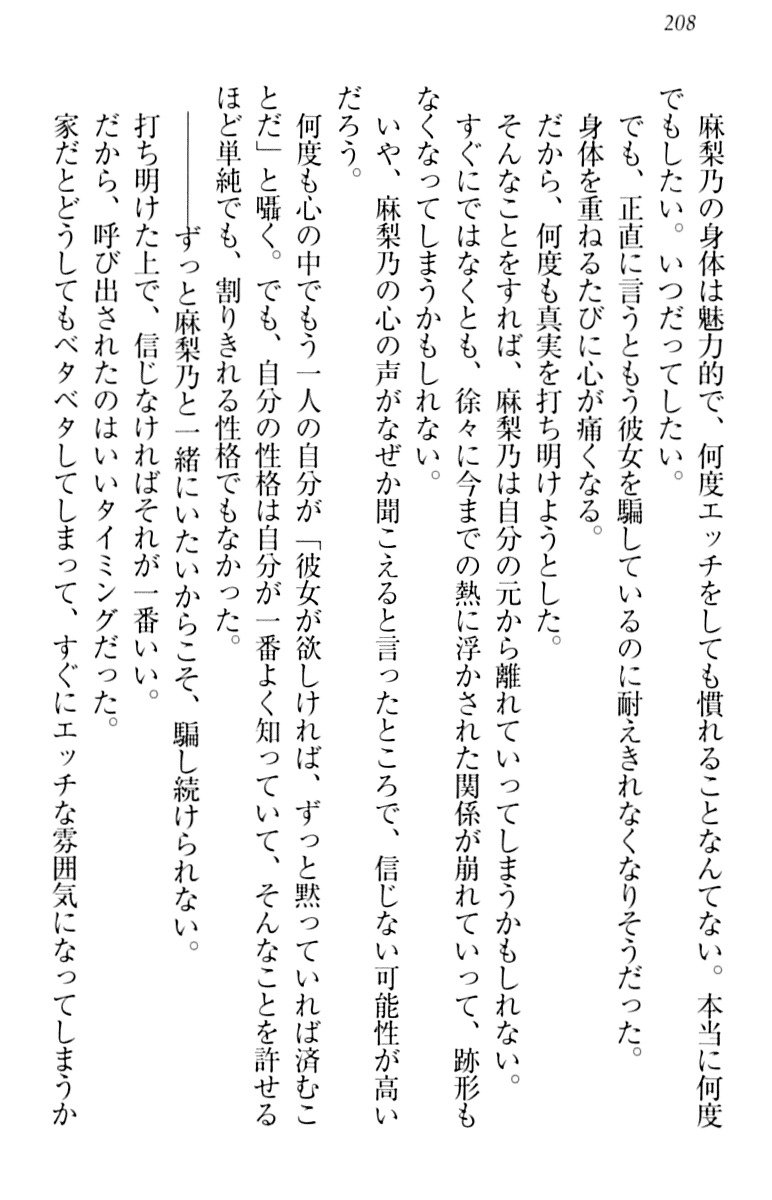 208
麻梨乃の身体は魅力的で、何度エッチをしても慣れることなんてない。本当に何度
でもしたい。いつだってしたい。
でも、正直に言うともう彼女を騙しているのに耐えきれなくなりそうだった。
身体を重ねるたびに心が痛くなる。
だから、何度も真実を打ち明けようとした。
そんなことをすれば、麻梨乃は自分の元から離れていってしまうかもしれない。
すぐにではなくとも、徐々に今までの熱に浮かされた関係が崩れていって、跡形も
なくなってしまうかもしれない。
いや、麻梨乃の心の声がなぜか聞こえると言ったところで、信じない可能性が高い
だろう。
何度も心の中でもう一人の自分が「彼女が欲しければ、ずっと黙っていれば済むこ
とだ」と囁く。でも、自分の性格は自分が一番よく知っていて、そんなことを許せる
ほど単純でも、割りきれる性格でもなかった。
――――ずっと麻梨乃と一緒にいたいからこそ、騙し続けられない。
打ち明けた上で、信じなければそれが一番いい。
だから、呼び出されたのはいいタイミングだった。
家だとどうしてもベタベタしてしまって、すぐにエッチな雰囲気になってしまうか